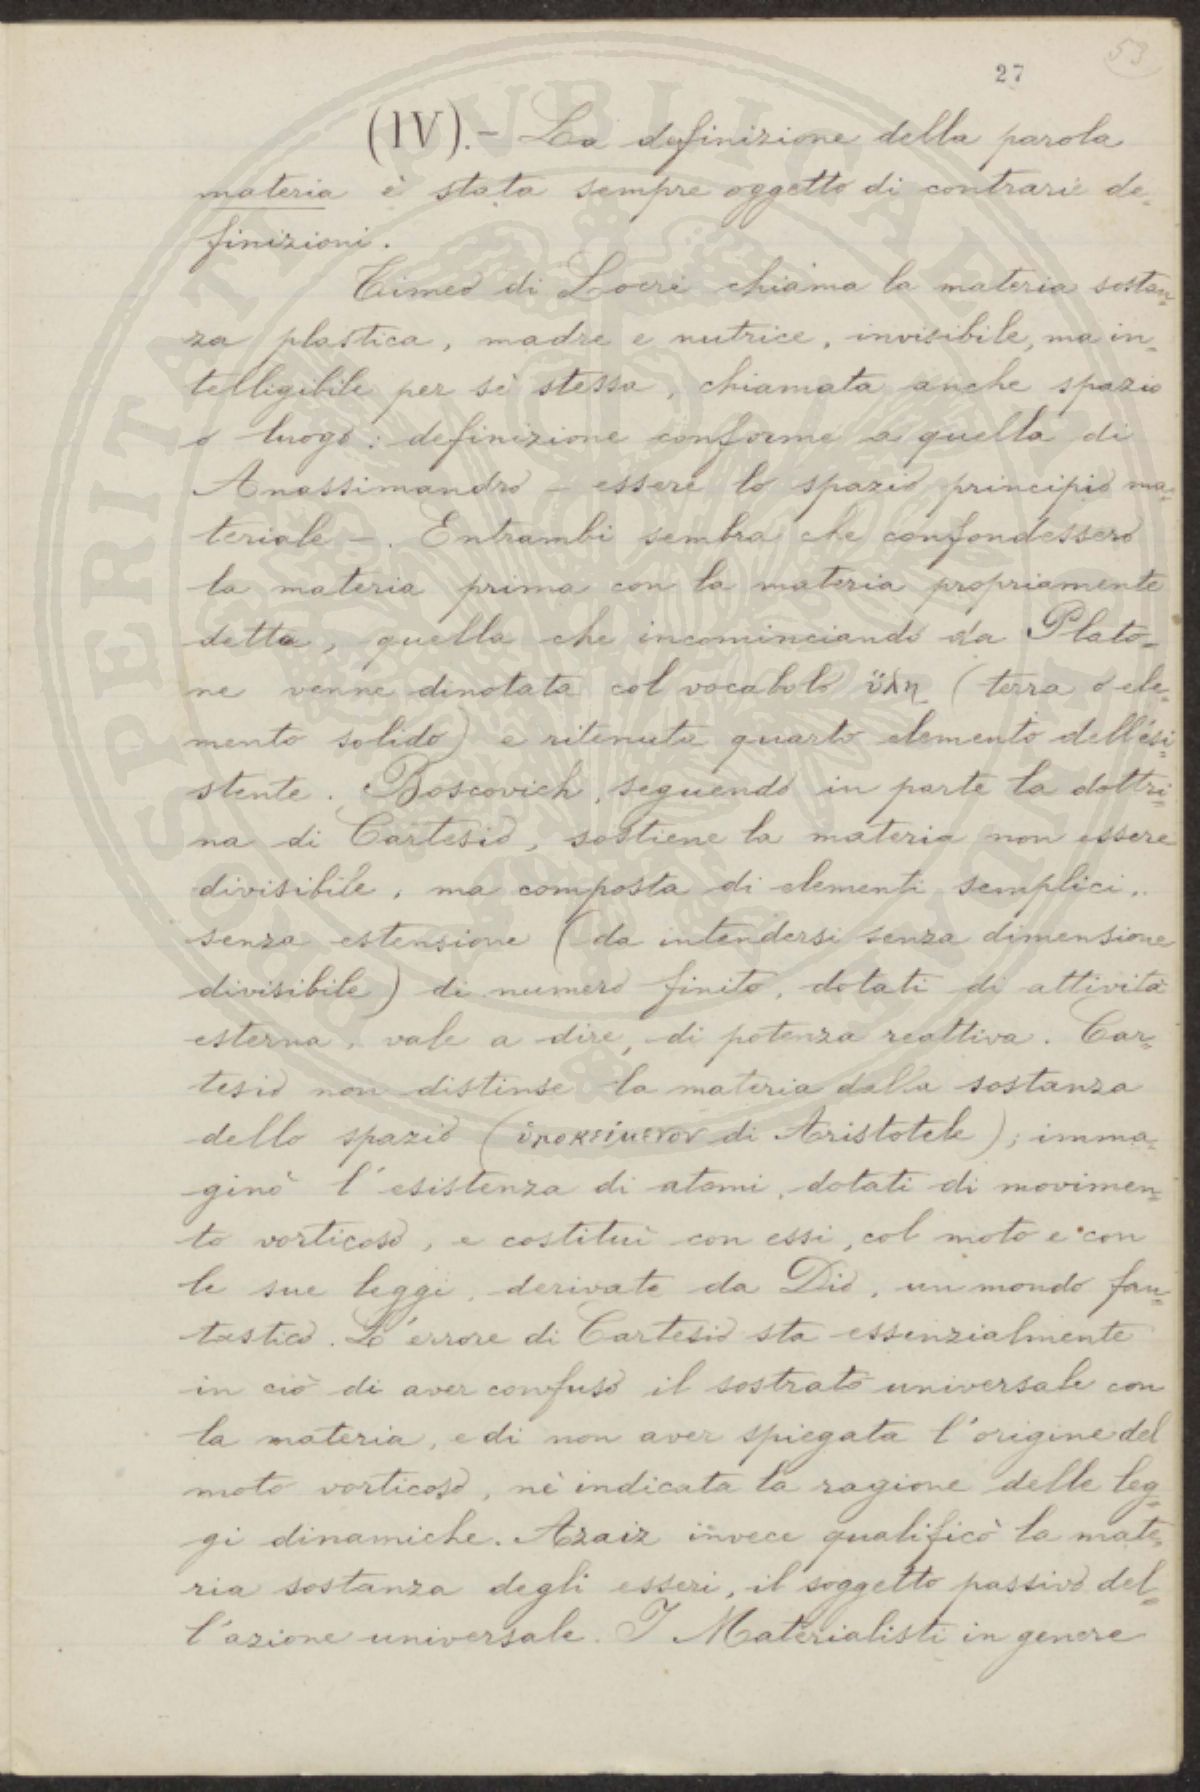 53
27
(IV). - La definizione della parola
materia è stata sempre oggetto di contrarie de-
finizioni.
Timeo di Locri chiama la materia sostan-
za plastica, madre e nutrice, invisibile, ma in-
telligibile per sè stessa, chiamata anche spazio
o luogo: definizione conforme a quella di
Anassimandro - essere lo spazio principio ma-
teriale -. Entrambi sembra che confondessero
la materia prima con la materia propriamente
detta, quella che incominciando da Plato-
ne venne dinotata col vocabolo ὕλη (terra o ele-
mento solido) e ritenuta quarto elemento dell'esi-
stente. Boscovich, seguendo in parte la dottri-
na di Cartesio, sostiene la materia non essere
divisibile, ma composta di elementi semplici,
senza estensione (da intendersi senza dimensione
divisibile) di numero finito, dotati di attività
esterna, vale a dire, di potenza reattiva. Car-
tesio non distinse la materia dalla sostanza
dello spazio (ὑποκείμενον di Aristotele); imma-
ginò l'esistenza di atomi, dotati di movimen-
to vorticoso, e costituì con essi, col moto e con
le sue leggi, derivate da Dio, un mondo fan-
tastico. Lo errore di Cartesio sta essenzialmente
in ciò di aver confuso il sostrato universale con
la materia, e di non aver spiegata l'origine del
moto vorticoso, nè indicata la ragione delle leg-
gi dinamiche. Azaiz invece qualificò la mate-
ria sostanza degli esseri, il soggetto passivo del-
l'azione universale. I Materialisti in genere
PROSPERITATI PUBLICAE